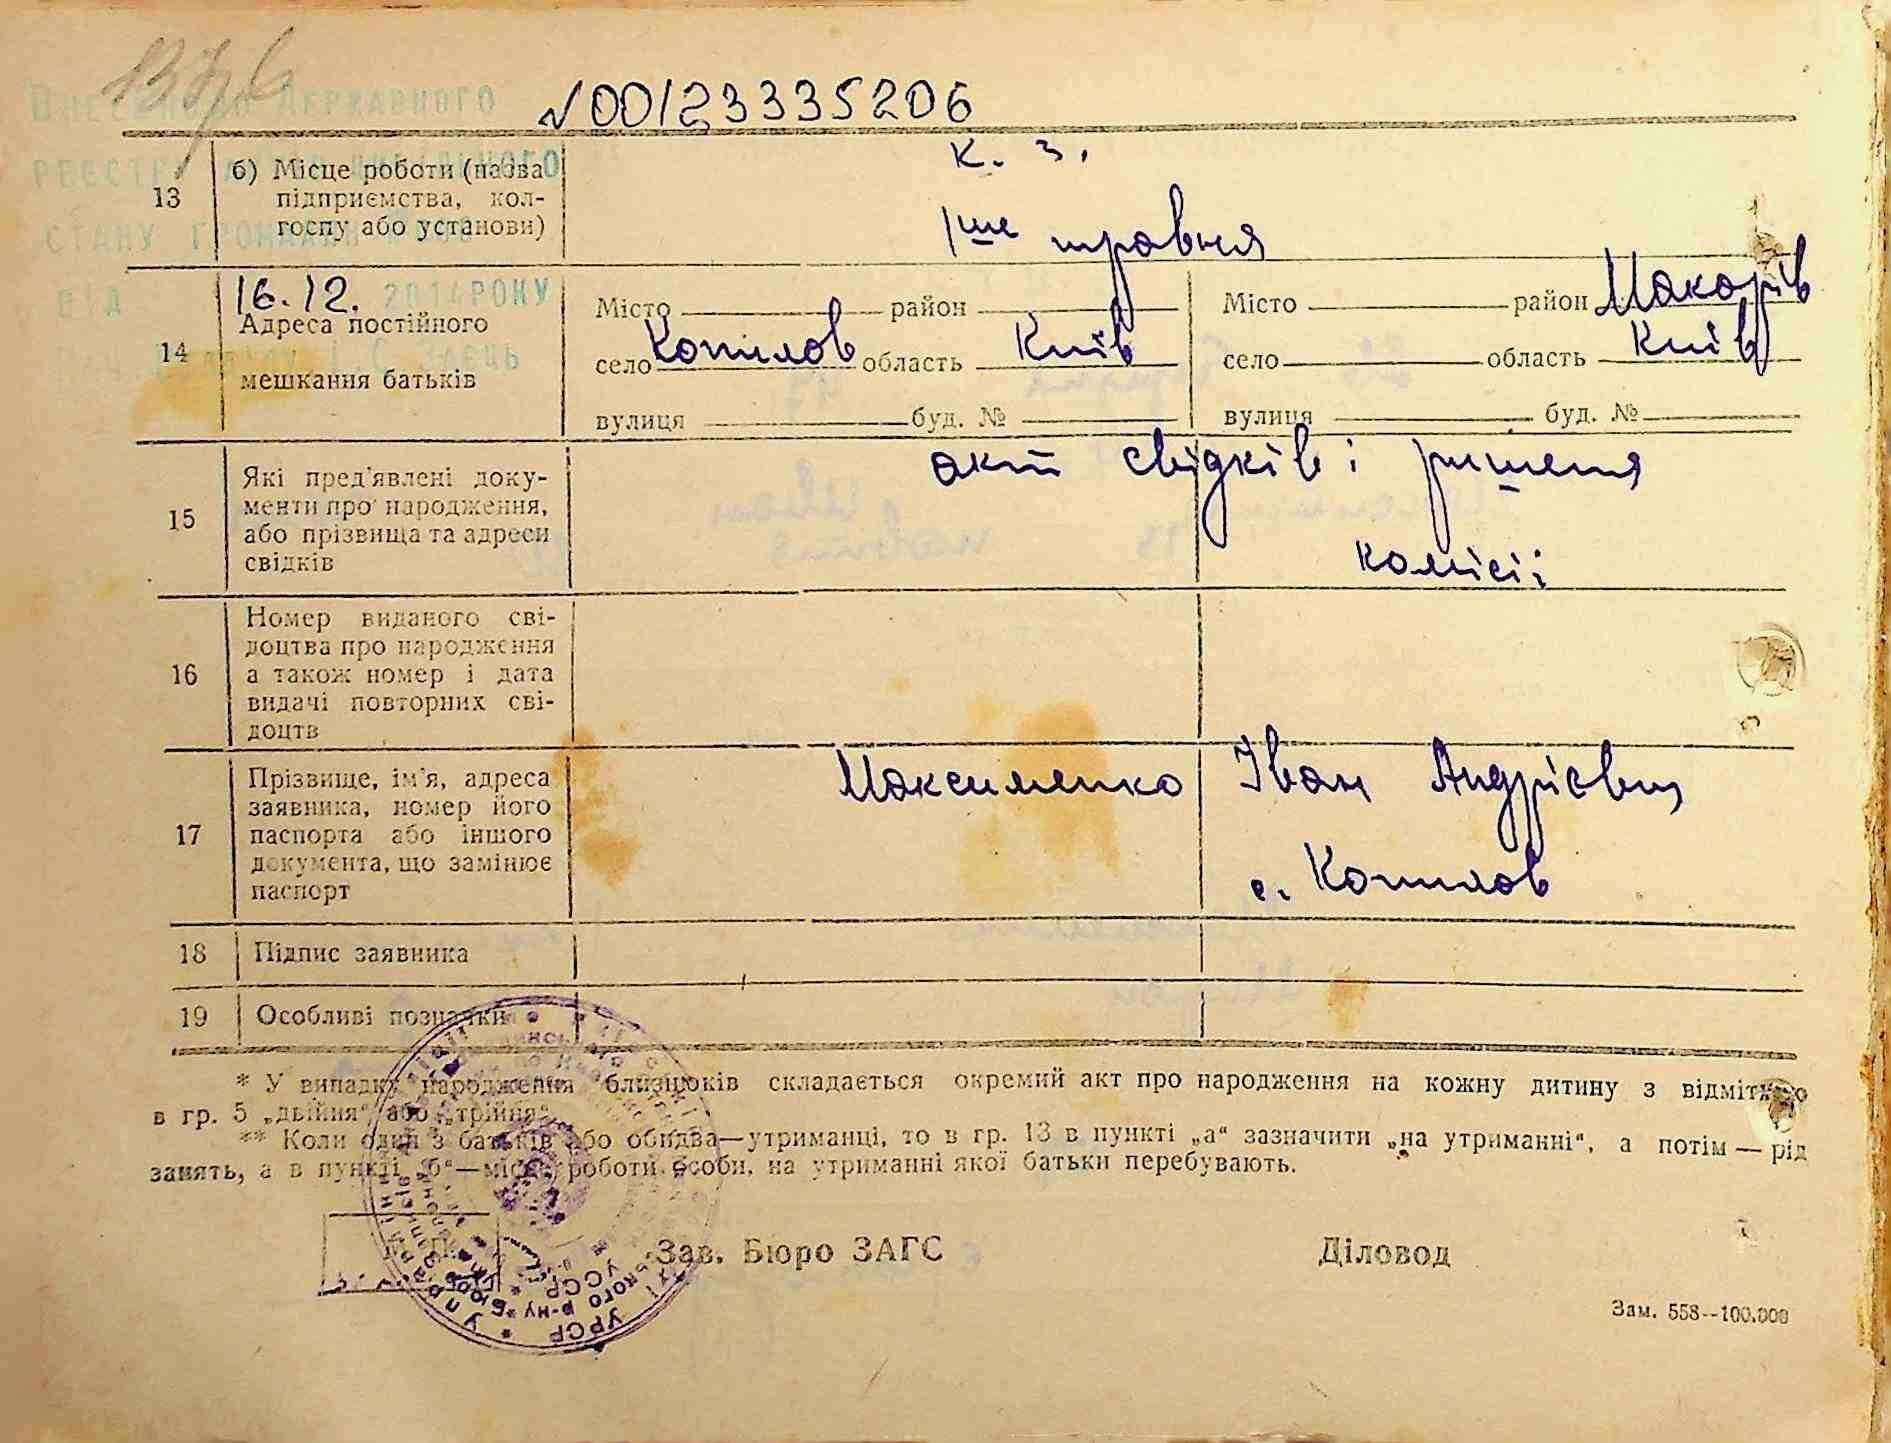 1376
Внесено до Державного
№ 00123335206
реєстру актів цивільного
стану громадян
від 16.12. 2014 року
13 б) Місце роботи (назва
підприємства, кол-
госпу або установи)
к. з.
1ше травня
14 Адреса постійного
мешкання батьків
Місто район
село Копилов область Київ
вулиця буд. №
Місто район Макарів
село область Київ
вулиця буд. №
15 Які пред'явлені доку-
менти про народження,
або прізвища та адреси
свідків
акт свідків і ришення
комісії
16 Номер виданого сві-
доцтва про народження
а також номер і дата
видачі повторних сві-
доцтв
17 Прізвище, ім'я, адреса
заявника, номер його
паспорта або іншого
документа, що замінює
паспорт
Максименко Іван Андрієвич
с. Копилов
18 Підпис заявника
19 Особливі позначки
* У випадку народження близнюків складається окремий акт про народження на кожну дитину з відміткою
в гр. 5 „двійня“ або „трійня“.
** Коли один з батьків або обидва—утриманці, то в гр. 13 в пункті „а“ зазначити „на утриманні“, а потім — рід
занять, а в пункті „б“—місце роботи особи, на утриманні якої батьки перебувають.
М. П.
Зав. Бюро ЗАГС Діловод
УРСР
УССР
Зам. 558--100.000